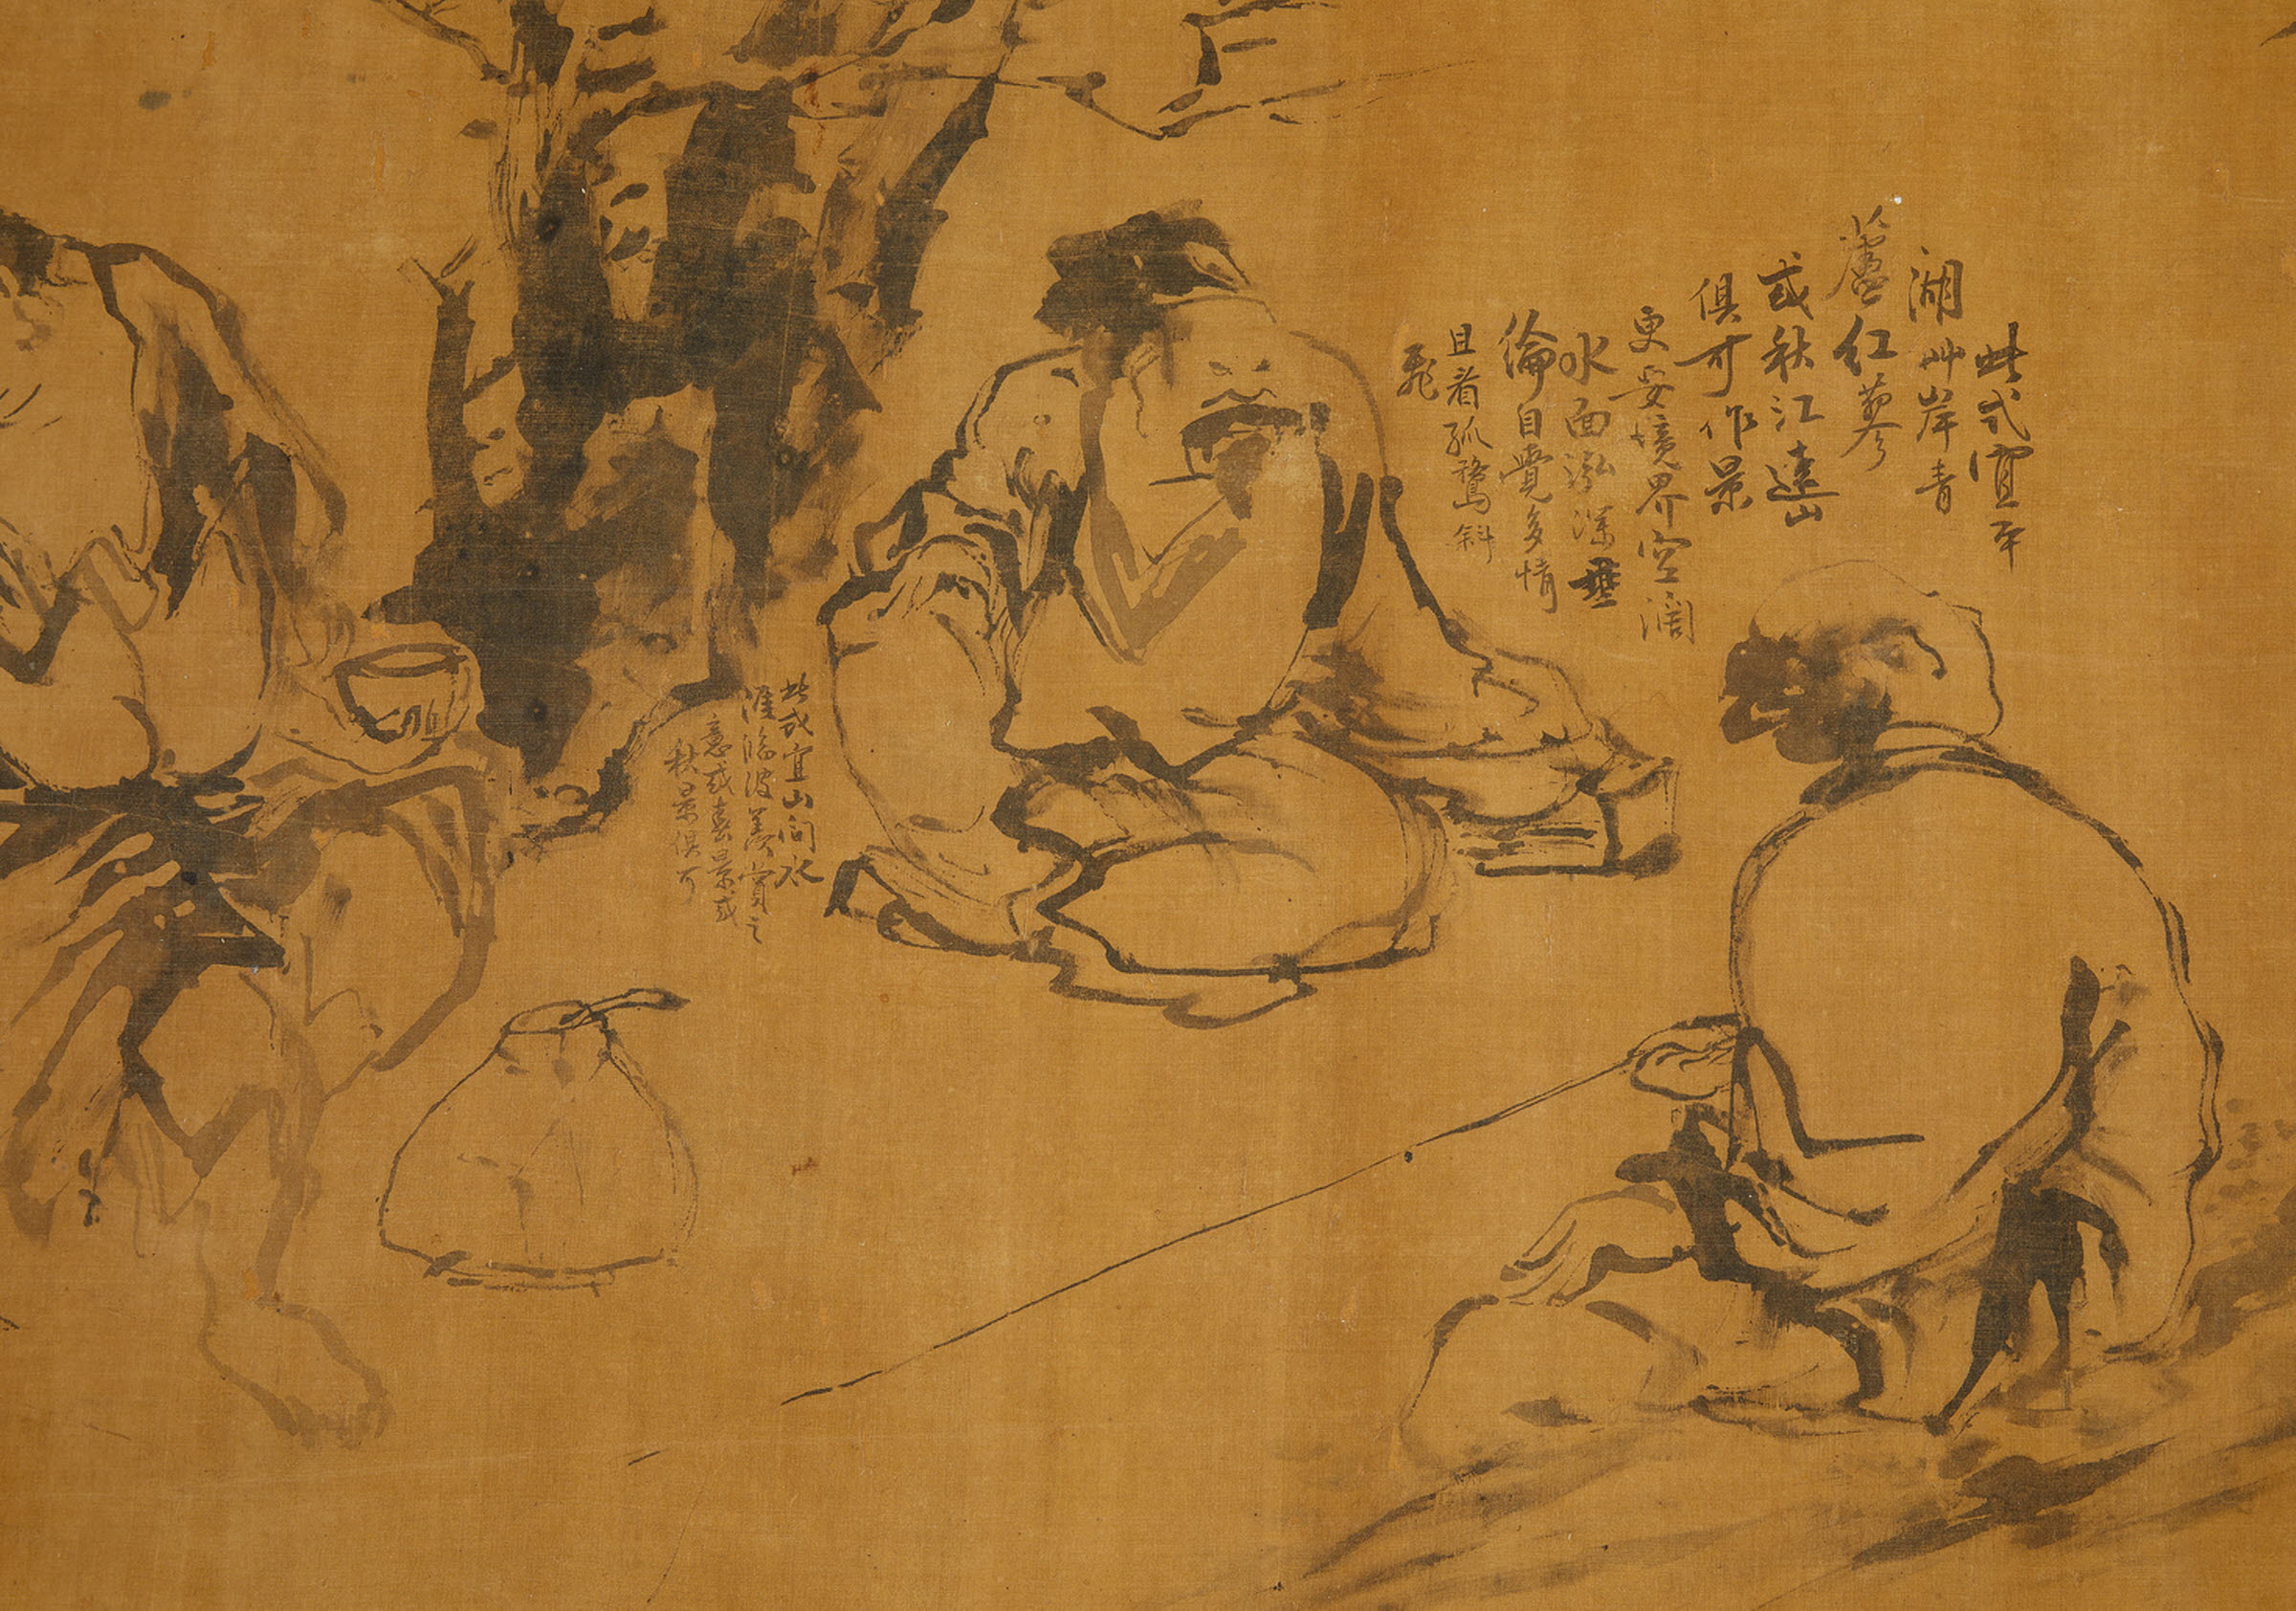 此式宜平
湖艸岸青
蘆紅蓼
或秋江遠山
俱可作景
更妥境界空濶
水面泓深垂
綸自覺多情
且看孤鶩斜
飛
此式宜山间水
涯臨波羨賞之
意或春景或
秋景俱可